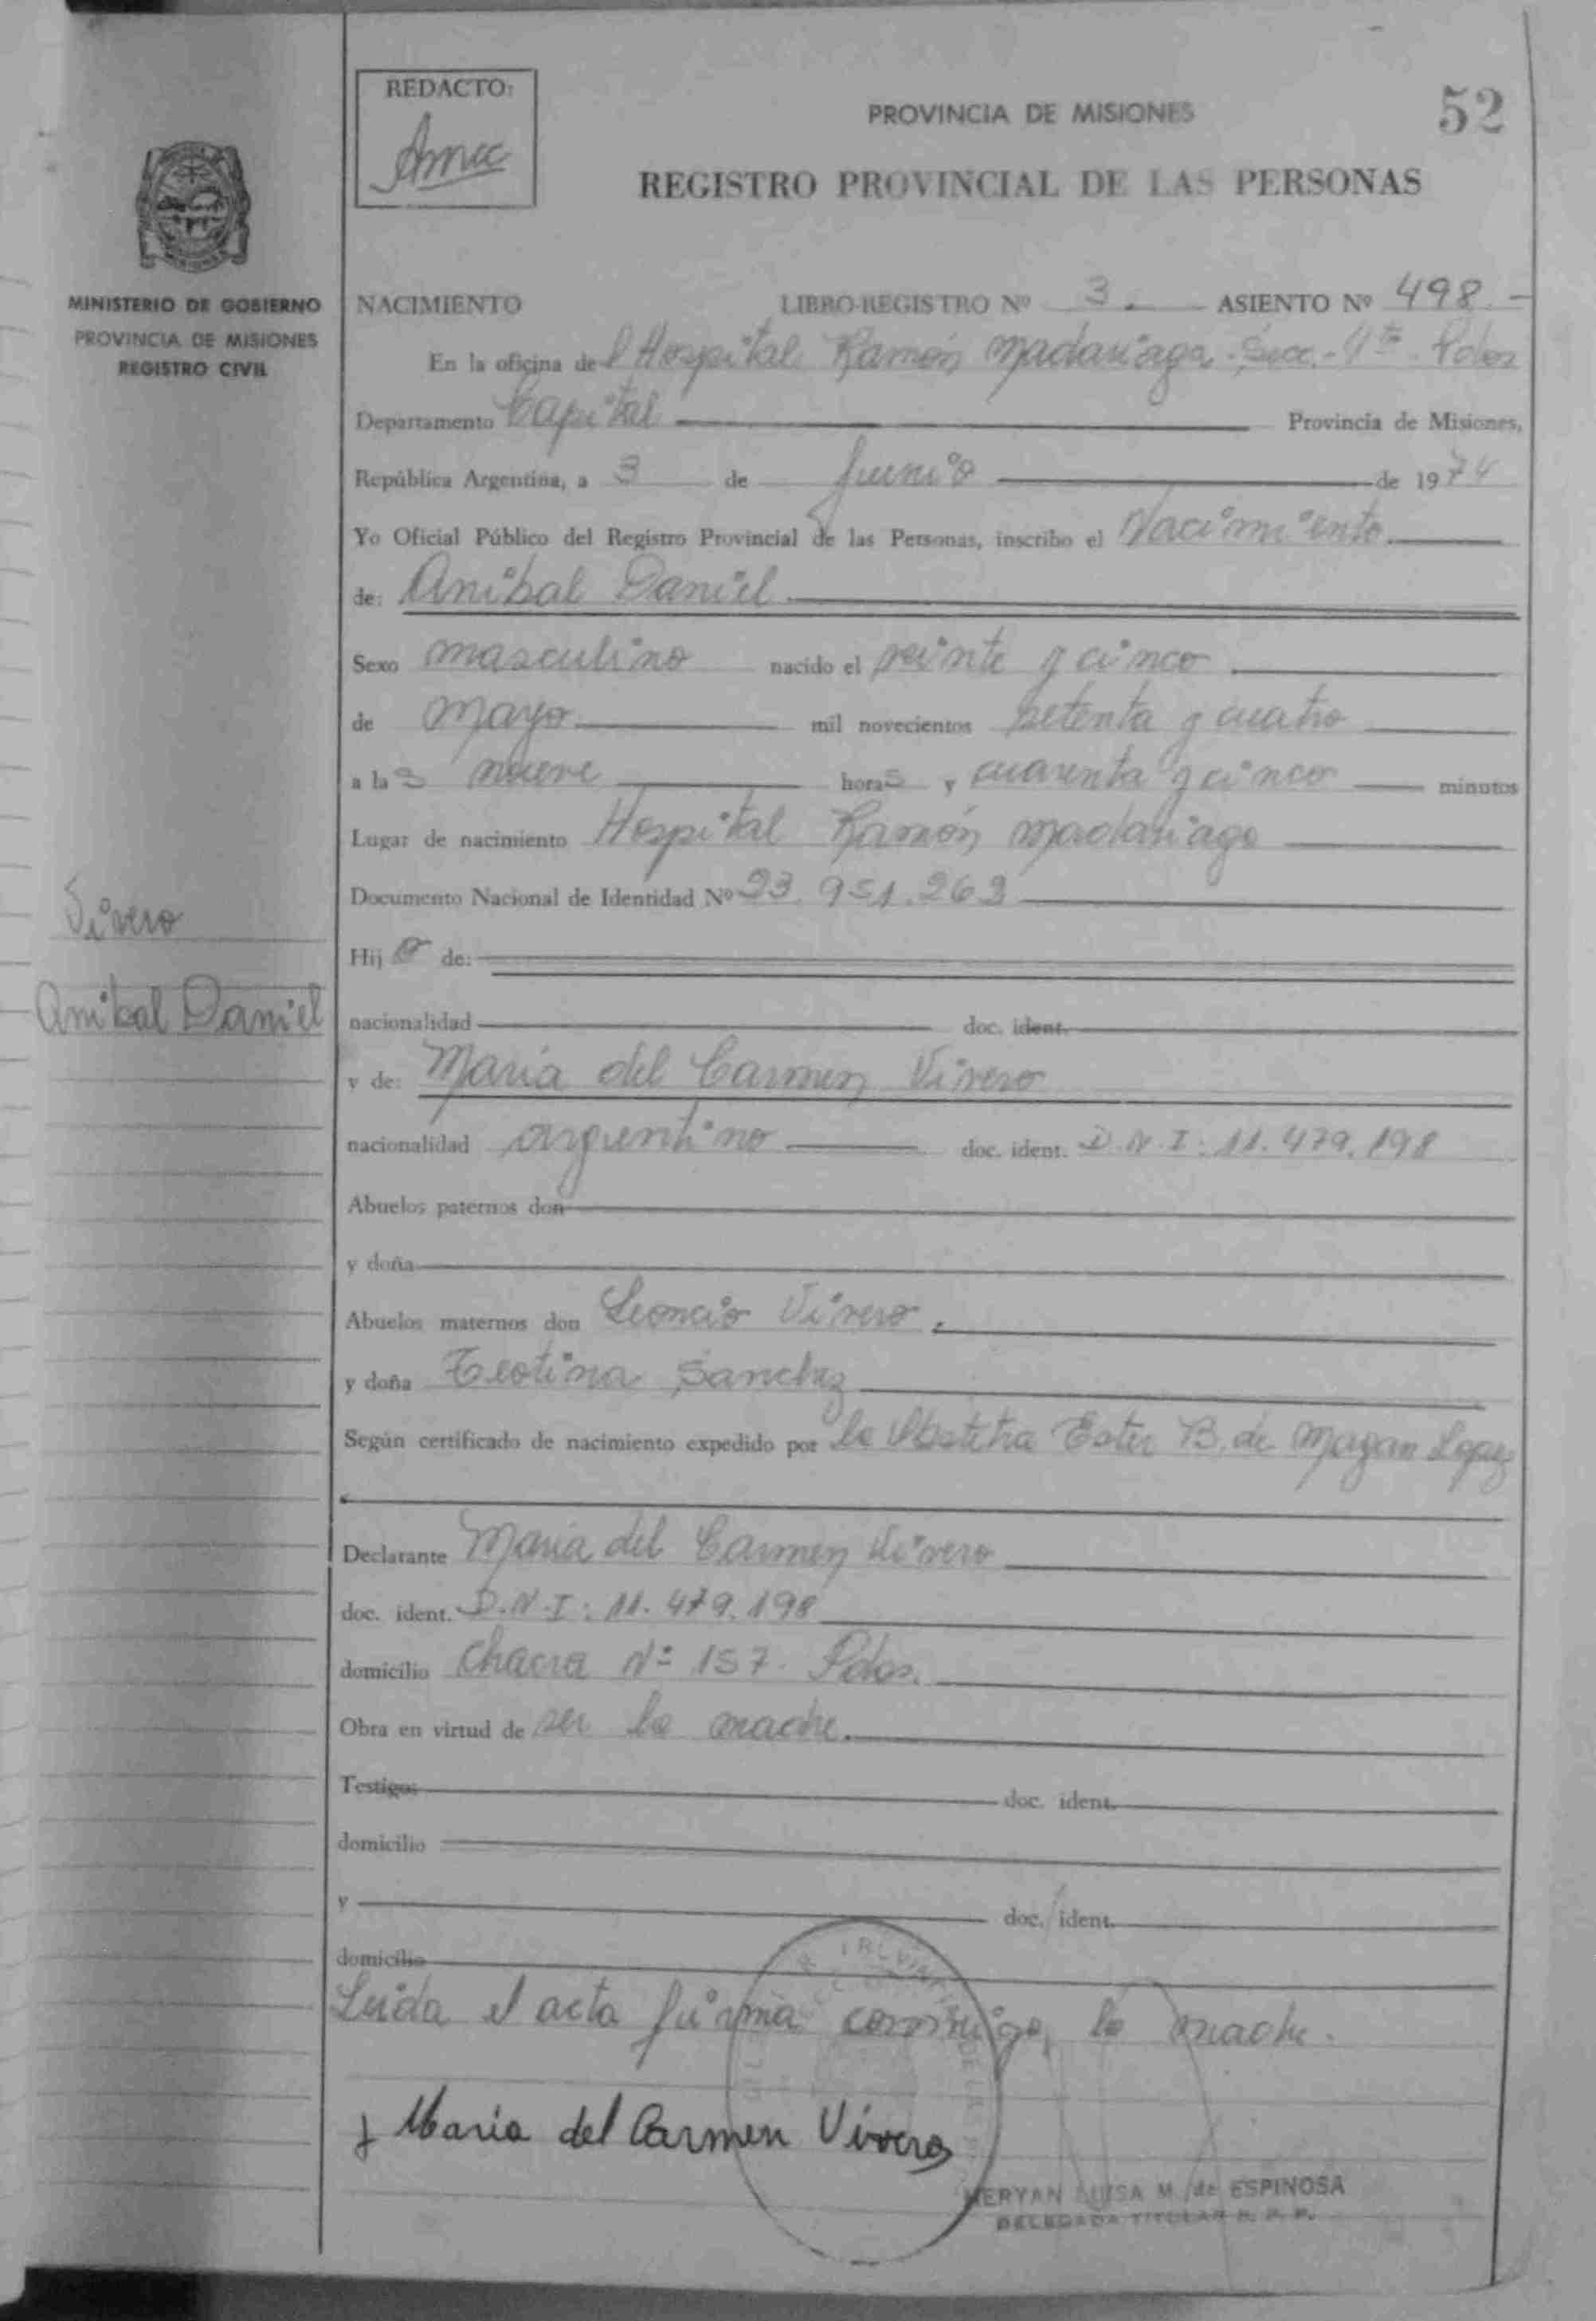 REDACTO:
PROVINCIA DE MISIONES
52
REGISTRO PROVINCIAL DE LAS PERSONAS
MINISTERIO DE GOBIERNO
PROVINCIA DE MISIONES
REGISTRO CIVIL
NACIMIENTO LIBRO-REGISTRO Nº 3.- ASIENTO Nº 498.-
En la oficina del Hospital Ramón Madariaga - Secc. - 4ta. Pdas
Departamento Capital Provincia de Misiones,
República Argentina, a 3 de Junio de 1974
Yo Oficial Público del Registro Provincial de las Personas, inscribo el Nacimiento
de: Anibal Daniel
Sexo masculino nacido el veinte y cinco
de Mayo mil novecientos setenta y cuatro
a las nueve horas y cuarenta y cinco minutos
Lugar de nacimiento Hospital Ramón Madariaga
Documento Nacional de Identidad Nº 23.951.263
Vivero
Hijo de:
Anibal Daniel
nacionalidad doc. ident.
y de: Maria del Carmen Vivero
nacionalidad argentino doc. ident. D.N.I: 11.479.198
Abuelos paternos don
y doña
Abuelos maternos don Leoncio Vivero.
y doña Teotina Sanchez
Según certificado de nacimiento expedido por la Obstetra Ester B. de Magan Lopez
Declarante Maria del Carmen Vivero
doc. ident. D.N.I: 11.479.198
domicilio Chacra Nº 157. Pdas.
Obra en virtud de ser la madre.
Testigo: doc. ident.
domicilio
y doc. ident.
domicilio
Leida el acta firma conmigo, la madre.
Maria del Carmen Vivero
MERYAN LUISA M. de ESPINOSA
DELEGADA TITULAR R. P. P.